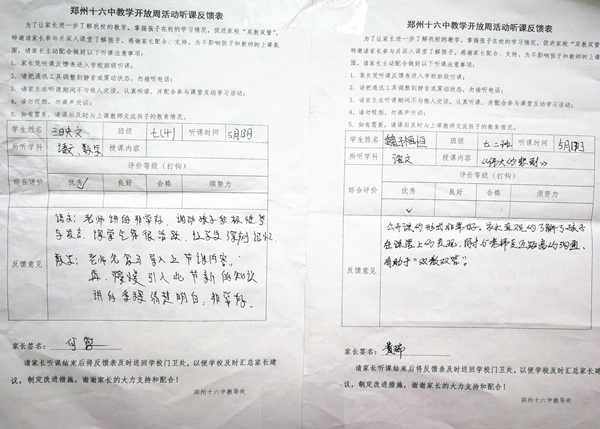 郑州十六中教学开放周活动听课反馈表
为了让家长进一步了解我校的教学，掌握孩子在校的学习情况，促进家校“双教双管”，
特邀请家长参与并深入课堂了解孩子，感谢家长配合、支持。为不影响孩子和教师的上课氛
围，请家长主动配合做好以下听课注意事项：
1、家长凭听课反馈表进入学校班级听课；
2、请把通讯工具调整到静音或震动状态，勿接听电话；
3、请家长在听课期间不与他人交谈，认真听课，并配合参与课堂互动学习活动；
4、请勿吸烟，勿高声交谈；
5、如有需要，请课后及时与上课教师交流孩子的教育情况。
学生姓名 班级 七(4) 听课时间 5月13日
所听学科 语文、数学 授课内容
评价等级（打钩）
综合评价 优秀 良好 合格 须努力
反馈意见
语文：老师讲的非常好，调动孩子积极性
课堂气氛很活跃，让学生深刻记忆
数学：老师先复习引入上节课内容，
再慢慢引入此节新的知识
讲的条理清楚明白，非常好
家长签名：
请家长听课结束后将反馈表及时退回学校门卫处，以便学校及时汇总家长建
议，制定改进措施，谢谢家长的大力支持和配合！
郑州十六中教导处
郑州十六中教学开放周活动听课反馈表
为了让家长进一步了解我校的教学，掌握孩子在校的学习情况，促进家校“双教双管”，
特邀请家长参与并深入课堂了解孩子，感谢家长配合、支持。为不影响孩子和教师的上课氛
围，请家长主动配合做好以下听课注意事项：
1、家长凭听课反馈表进入学校班级听课；
2、请把通讯工具调整到静音或震动状态，勿接听电话；
3、请家长在听课期间不与他人交谈，认真听课，并配合参与课堂互动学习活动；
4、请勿吸烟，勿高声交谈；
5、如有需要，请课后及时与上课教师交流孩子的教育情况。
学生姓名 班级 七二班 听课时间 5月13日
所听学科 语文 授课内容 《伟大的悲剧》
评价等级（打钩）
综合评价 优秀 良好 合格 须努力
反馈意见
公开课的形式非常好。家长直观的了解了孩子
在课堂上的表现，同时与老师更近距离的沟通，
有助于“双教双管”。
家长签名：黄瑞
请家长听课结束后将反馈表及时退回学校门卫处，以便学校及时汇总家长建
议，制定改进措施，谢谢家长的大力支持和配合！
郑州十六中教导处